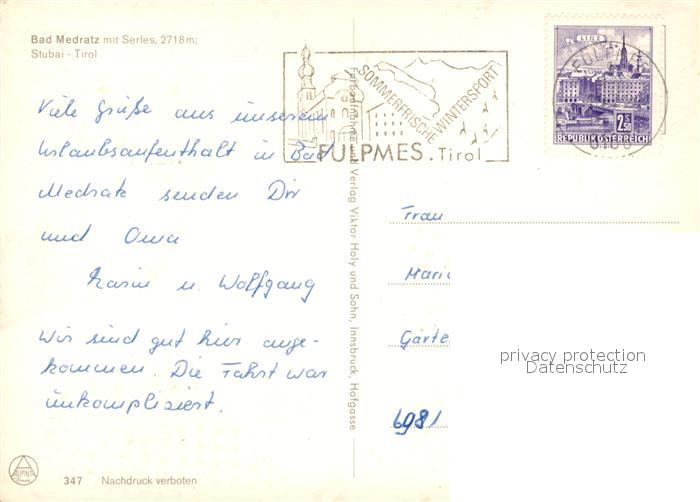 Bad Medratz mit Serles, 2718m;
Stubai - Tirol
Viele Grüße aus unserem
Urlaubsaufenthalt in Bad
Medratz senden Dir
und Oma
Karin u. Wolfgang
Wir sind gut hier ange-
kommen. Die Fahrt war
unkompliziert.
ALPINA
347 Nachdruck verboten
Farbaufnahme und Verlag Viktor Holy und Sohn, Innsbruck, Hofgasse
SOMMERFRISCHE WINTERSPORT
FULPMES. Tirol
LINZ
2.50
S
REPUBLIK ÖSTERREICH
FULPMES
6166
Frau
Maric
Garte
6981
privacy protection
Datenschutz